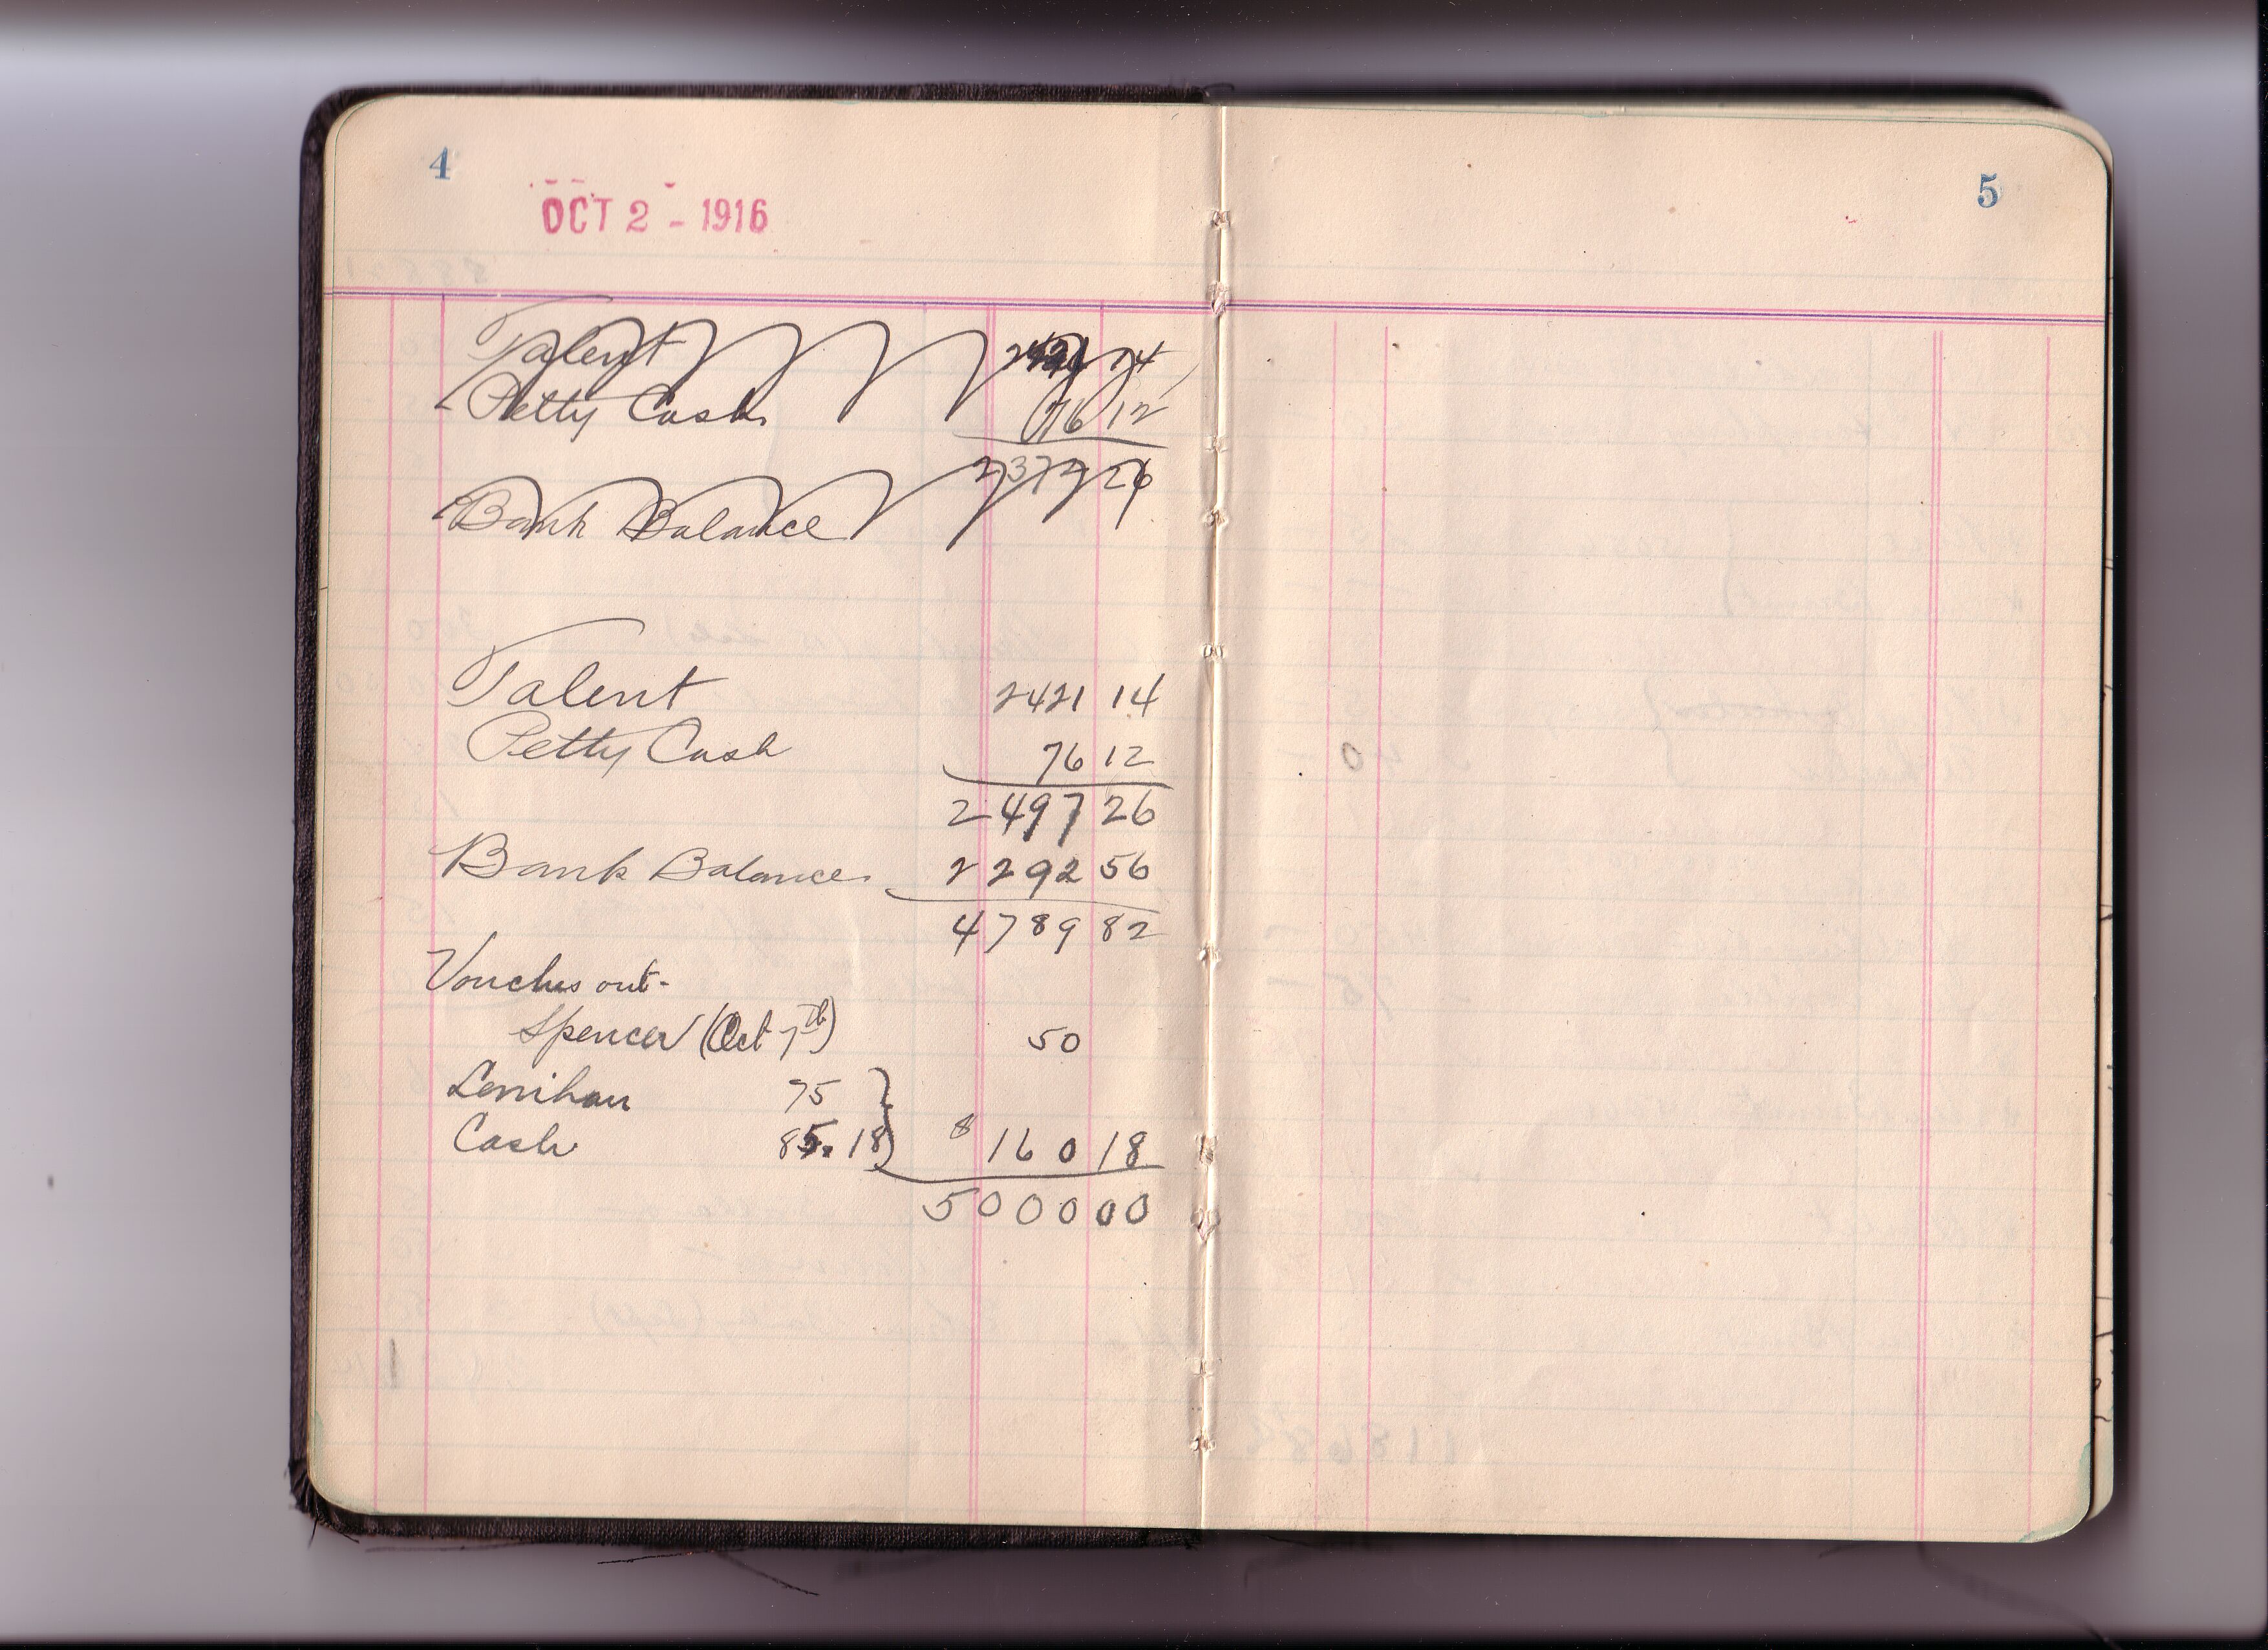 4
OCT 2 - 1916
5
Talent 14
Petty Cash 76 12
26
Bank Balance
Talent 2421 14
Petty Cash 76 12
2 497 26
Bank Balance 2 292 56
4 789 82
Vouches out-
Spencer (Oct 7th) 50
Lenihan 75
Cash 85.18 } $ 160 18
5 000 00